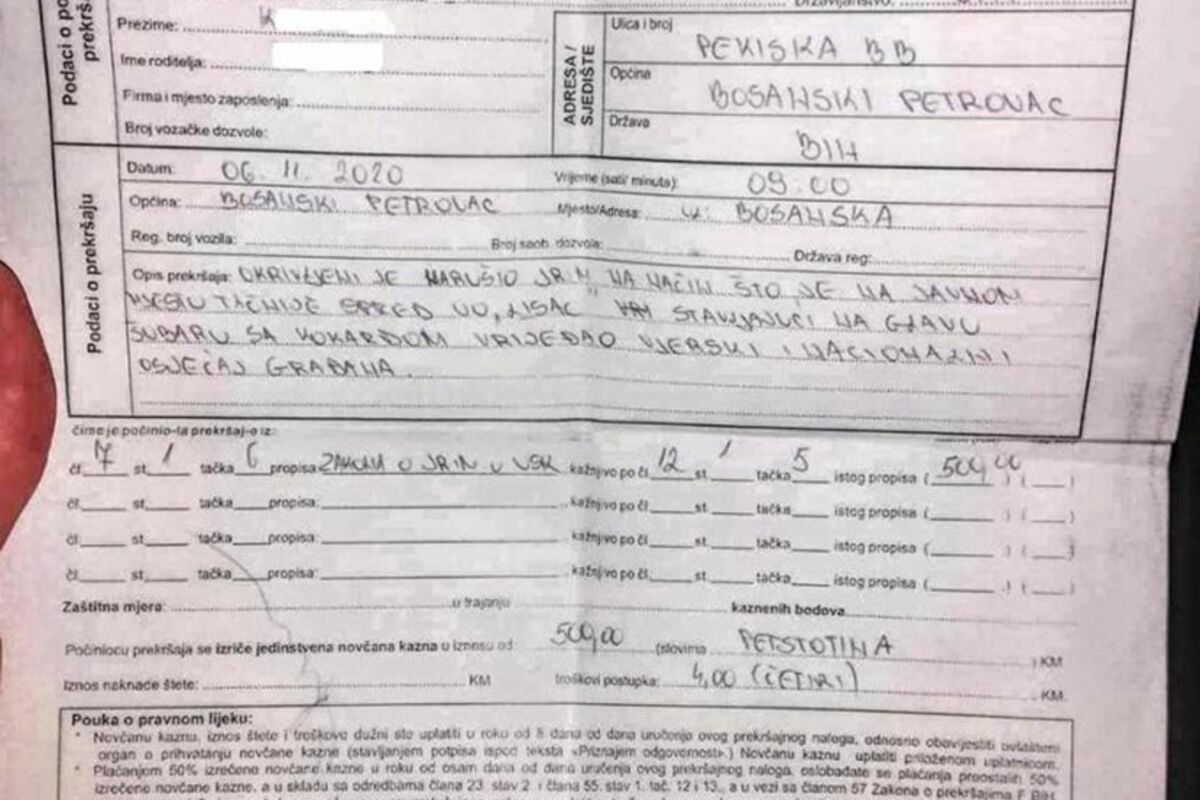 Podaci o prekršaj
Prezime: K
Ime roditelja:
Firma i mjesto zaposlenja:
Broj vozačke dozvole:
ADRESA / SJEDIŠTE
Ulica i broj PEKISKA BB
Općina BOSANSKI PETROVAC
Država BIH
Podaci o prekršaju
Datum: 06. 11. 2020 Vrijeme (sati/ minuta): 09.00
Općina: BOSANSKI PETROVAC Mjesto/Adresa: ul. BOSANSKA
Reg. broj vozila: Broj saob. dozvola: Država reg:
Opis prekršaja: OKRIVLJENI JE NARUŠIO JRIM, NA NAČIN ŠTO JE NA JAVNOM
MJESTU TAČNIJE ISPRED UO, LISAC STAVLJAJUĆI NA GLAVU
ŠUBARU SA KOKARDOM VRIJEĐAO VJERSKI I NACIONALNI
OSJEĆAJ GRAĐANA.
čime je počinio-la prekršaj-e iz:
čl. 7 st. 1 tačka 6 propisa ZAKONA O JRIM U USK kažnjivo po čl. 12 st. 1 tačka 5 istog propisa ( 500,00 ) ( )
čl. st. tačka propisa: kažnjivo po čl. st. tačka istog propisa ( ) ( )
čl. st. tačka propisa: kažnjivo po čl. st. tačka istog propisa ( ) ( )
čl. st. tačka propisa: kažnjivo po čl. st. tačka istog propisa ( ) ( )
Zaštitna mjera: u trajanju kaznenih bodova
Počiniocu prekršaja se izriče jedinstvena novčana kazna u iznosu od: 500,00 (slovima PETSTOTINA ) KM
Iznos naknade štete: KM troškovi postupka: 4,00 (ČETIRI) KM.
Pouka o pravnom lijeku:
* Novčanu kaznu, iznos štete i troškove dužni ste uplatiti u roku od 8 dana od dana uručenja ovog prekršajnog naloga, odnosno obavijestiti ovlašteni
organ o prihvatanju novčane kazne (stavljanjem potpisa ispod teksta «Priznajem odgovornost».) Novčanu kaznu uplatiti priloženom uplatnicom.
* Plaćanjem 50% izrečene novčane kazne u roku od osam dana od dana uručenja ovog prekršajnog naloga, oslobađate se plaćanja preostalih 50%
izrečene novčane kazne, a u skladu sa odredbama člana 23. stav 2. i člana 55. stav 1. tač. 12 i 13., a u vezi sa članom 57 Zakona o prekršajima F BIH.